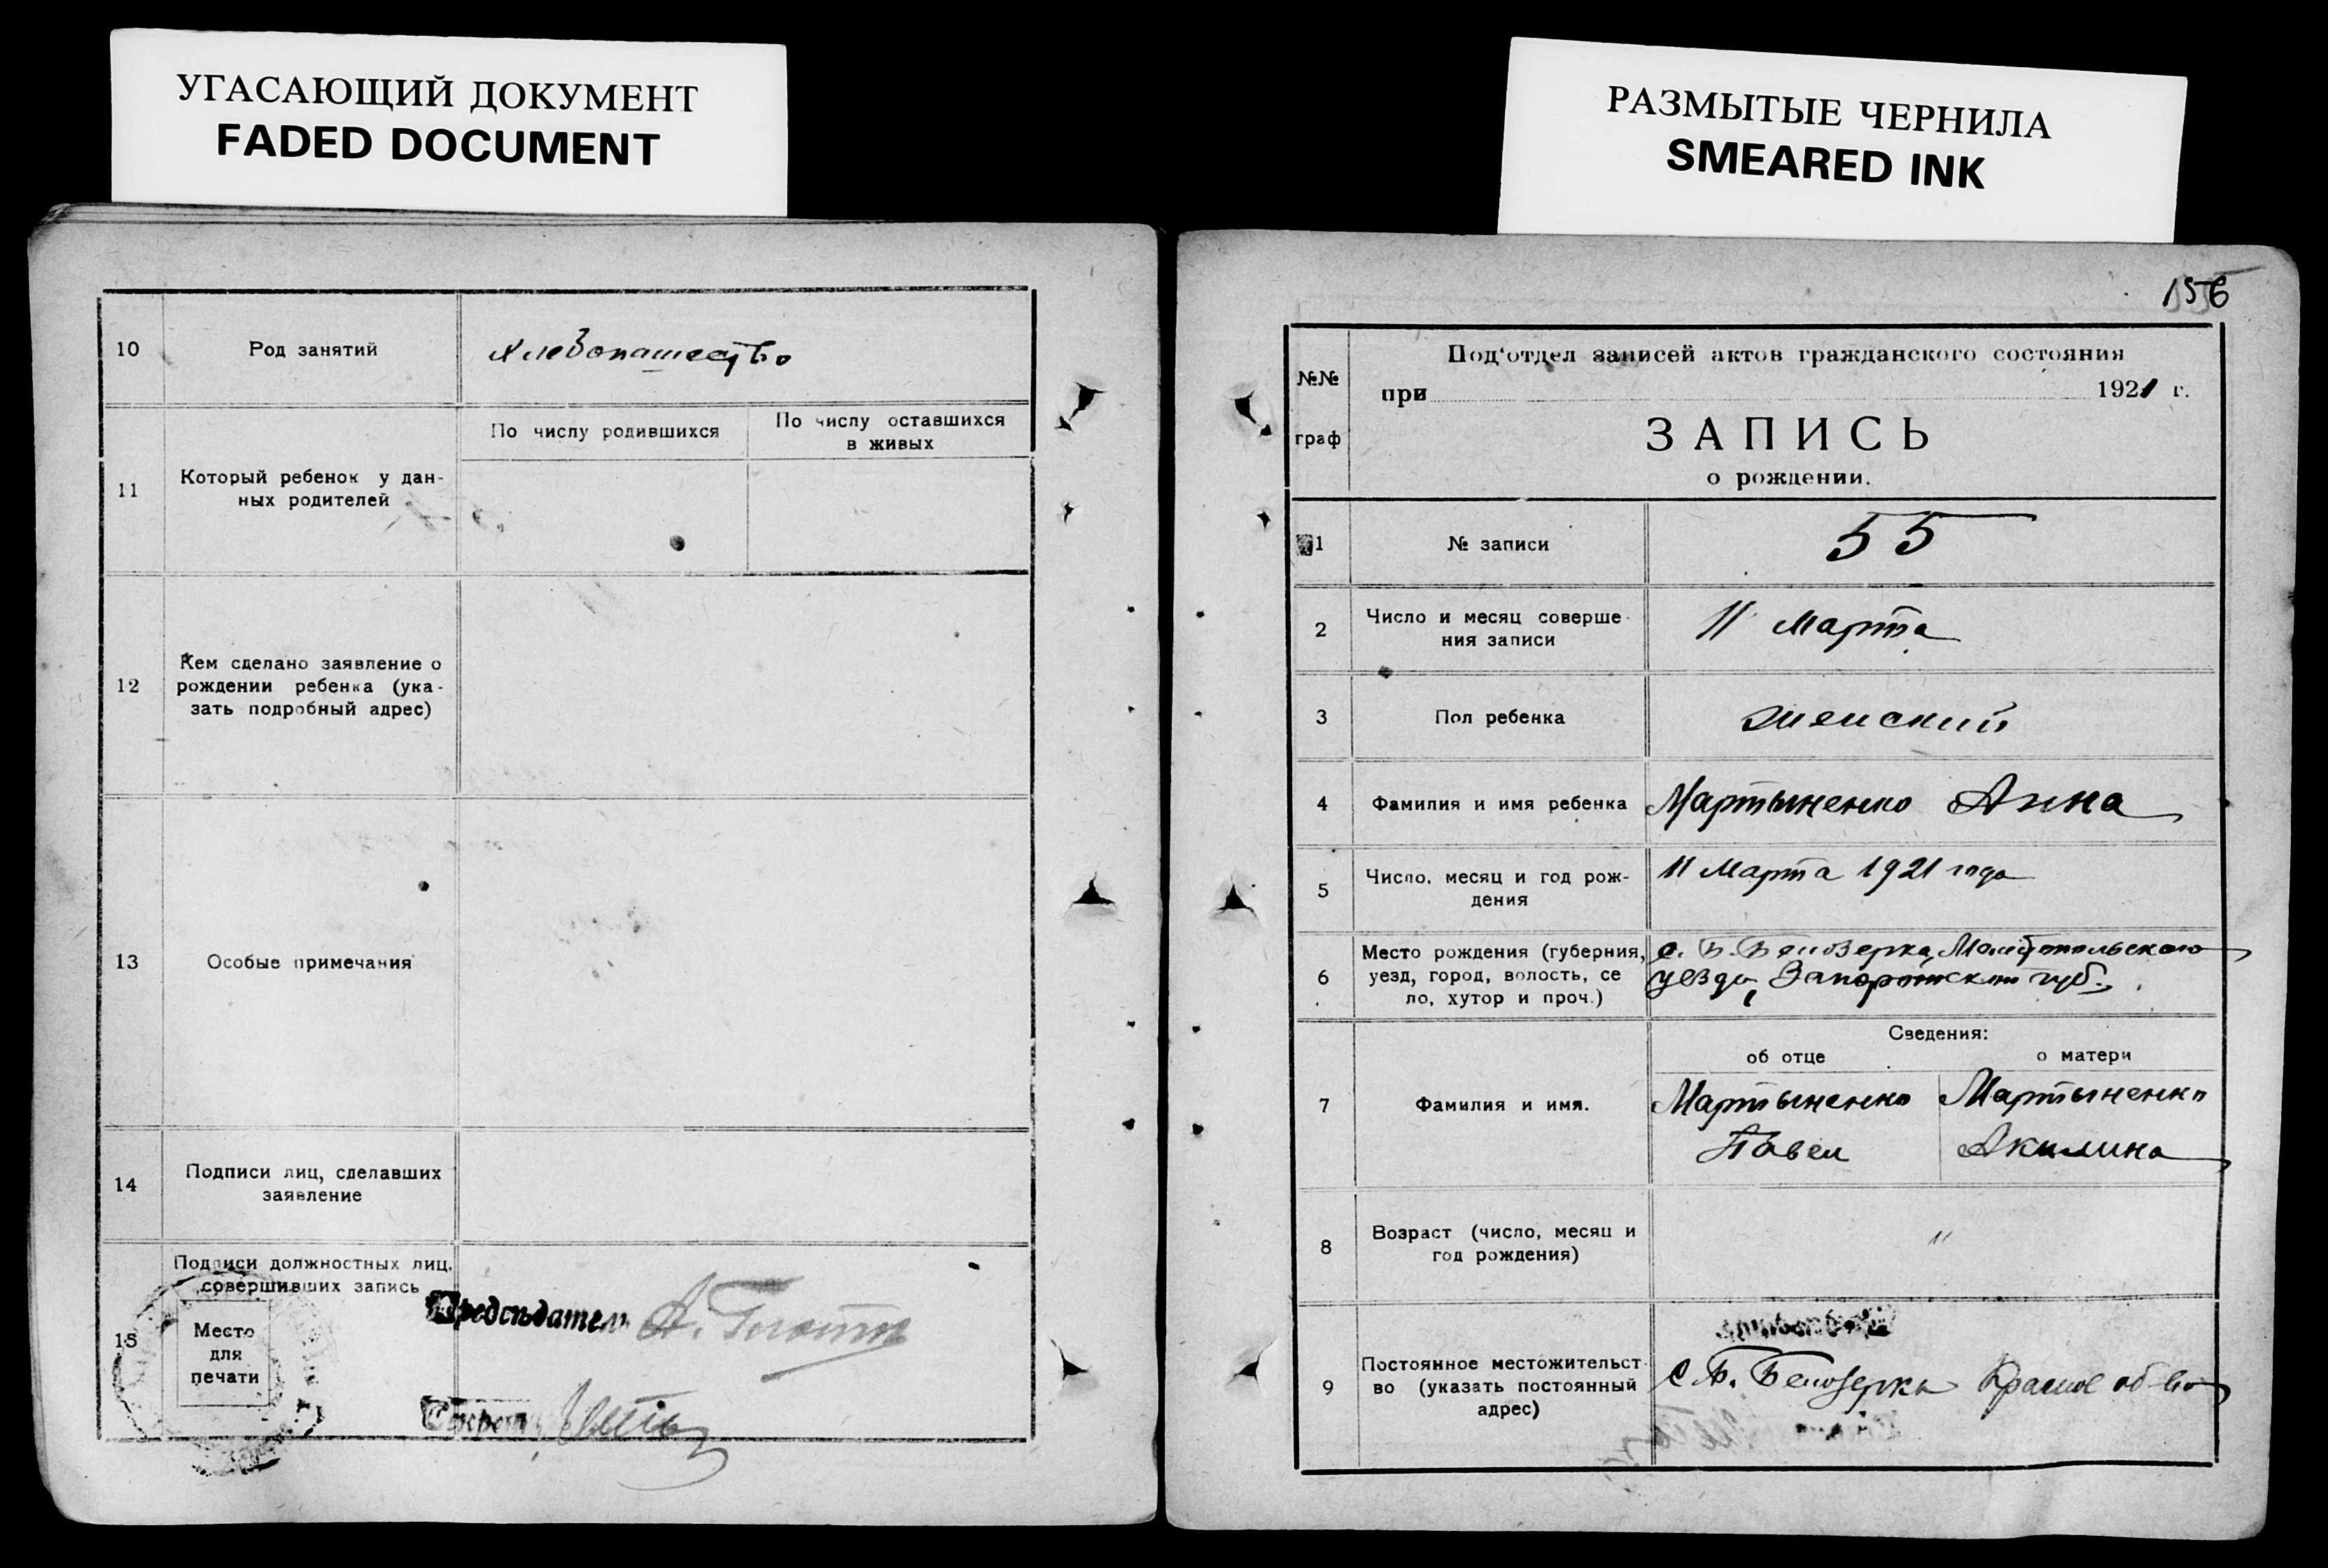 УГАСАЮЩИЙ ДОКУМЕНТ
FADED DOCUMENT
10
Род занятий
Хлебопашество
11
Который ребенок у дан-
ных родителей
По числу родившихся
По числу оставшихся
в живых
12
Кем сделано заявление о
рождении ребенка (ука-
зать подробный адрес)
13
Особые примечания
14
Подписи лиц, сделавших
заявление
15
Подписи должностных лиц,
совершивших запись
Место
для
печати
Предсѣдатель А.
Секрет
РАЗМЫТЫЕ ЧЕРНИЛА
SMEARED INK
156
№№
граф
Под'отдел записей актов гражданского состояния
при 1921 г.
ЗАПИСЬ
о рождении.
1
№ записи
55
2
Число и месяц соверше-
ния записи
11 марта
3
Пол ребенка
женский
4
Фамилия и имя ребенка
Мартыненко Анна
5
Число, месяц и год рож-
дения
11 марта 1921 года
6
Место рождения (губерния,
уезд, город, волость, се
ло, хутор и проч.)
с. Б. Белозерка, Мелитопольского
уезда, Запорожской губ.
Сведения:
об отце
о матери
7
Фамилия и имя.
Мартыненко
Павел
Мартыненко
Акилина
8
Возраст (число, месяц и
год рождения)
"
9
Постоянное местожительст-
во (указать постоянный
адрес)
с Б. Белозерка Красное об-во